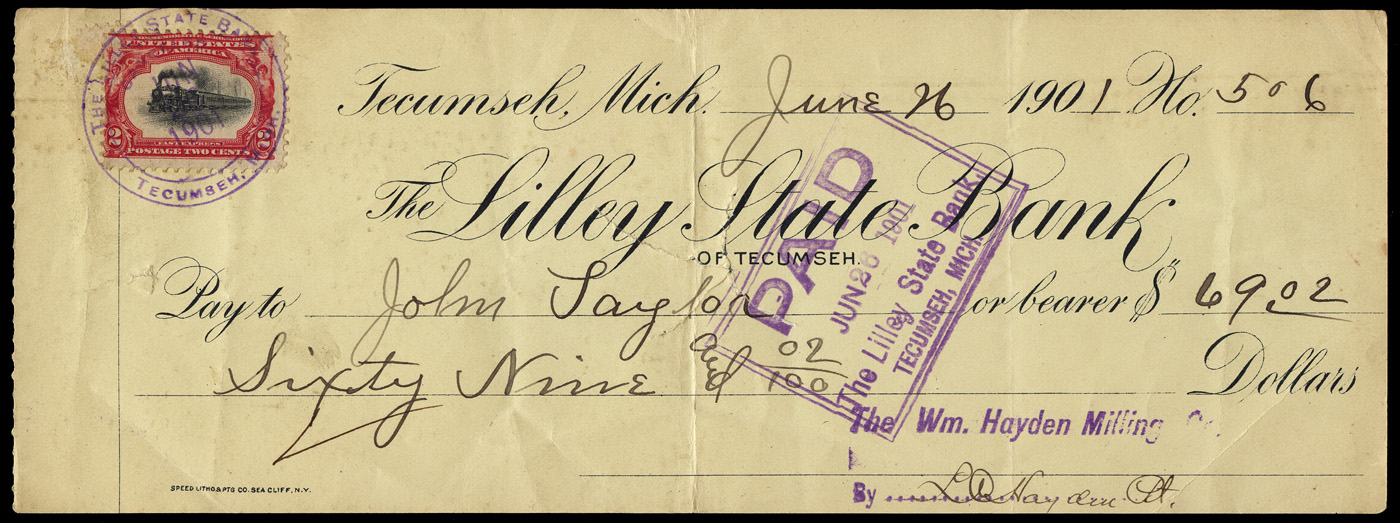 THE LILLEY STATE BANK
UNITED STATES
OF AMERICA
JUN
1901
2 2
FAST EXPRESS
POSTAGE TWO CENTS
TECUMSEH, MICH.
Tecumseh, Mich. June 26 1901 No. 506
The Lilley State Bank
OF TECUMSEH.
Pay to John or bearer $ 69.02
Sixty Nine and 02/100 Dollars
PAID
JUN 26 1901
The Lilley State Bank,
TECUMSEH, MICH.
The Wm. Hayden Milling Co.
By Hayden
SPEED LITHO. & PTG CO. SEA CLIFF, N.Y.